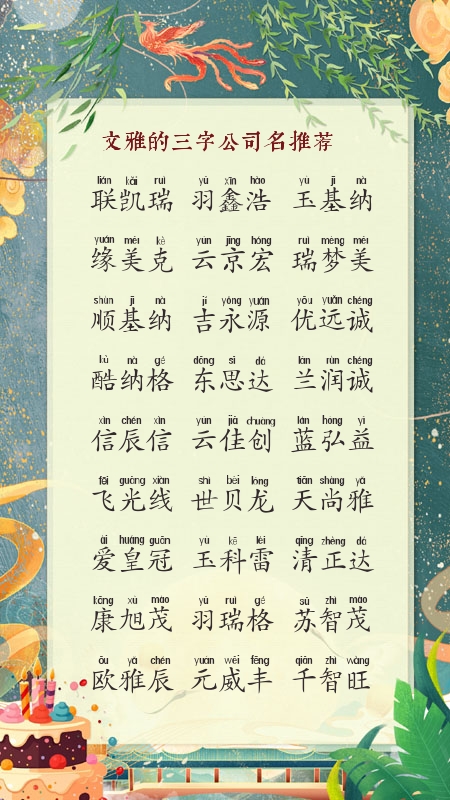 文雅的三字公司名推荐
lián kǎi ruì yǔ xīn hào yù jī nà
联凯瑞 羽鑫浩 玉基纳
yuán měi kè yún jīng hóng ruì mèng měi
缘美克 云京宏 瑞梦美
shùn jī nà jí yǒng yuán yōu yuǎn chéng
顺基纳 吉永源 优远诚
kù nà gé dōng sī dá lán rùn chéng
酷纳格 东思达 兰润诚
xìn chén xìn yún jiā chuàng lán hóng yì
信辰信 云佳创 蓝弘益
fēi guāng xiàn shì bèi lóng tiān shàng yǎ
飞光线 世贝龙 天尚雅
ài huáng guān yù kē léi qīng zhèng dá
爱皇冠 玉科雷 清正达
kāng xù mào yǔ ruì gé sū zhì mào
康旭茂 羽瑞格 苏智茂
ōu yǎ chén yuán wēi fēng qiān zhì wàng
欧雅辰 元威丰 千智旺